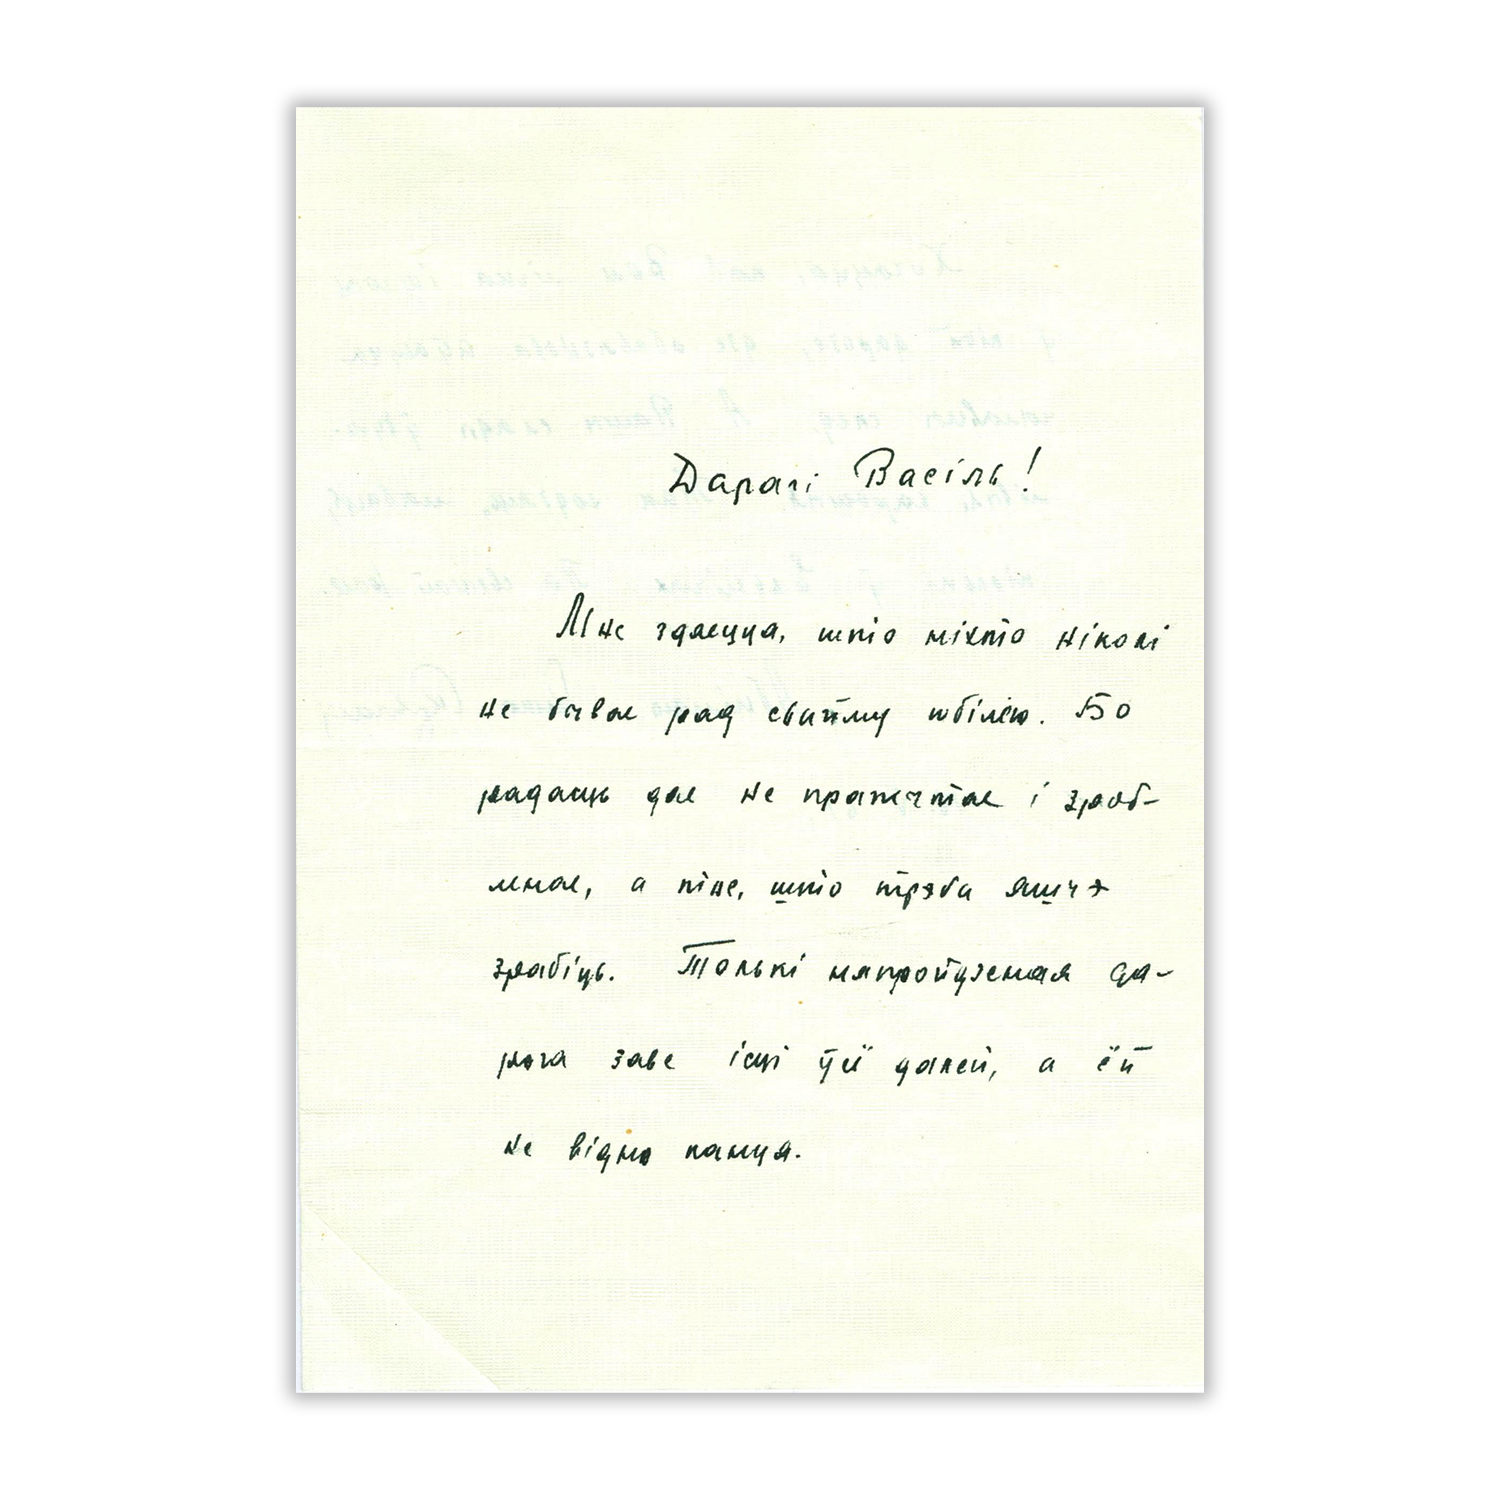 Дарагі Васіль!
Мне здаецца, што ніхто ніколі
не бывае рад свайму юбілею. Бо
радасць дае не пражытае і зроб-
ленае, а тое, што трэба яшчэ
зрабіць. Толькі няпройдзеная да-
рога заве ісці ўсё далей, а ёй
не відно канца.